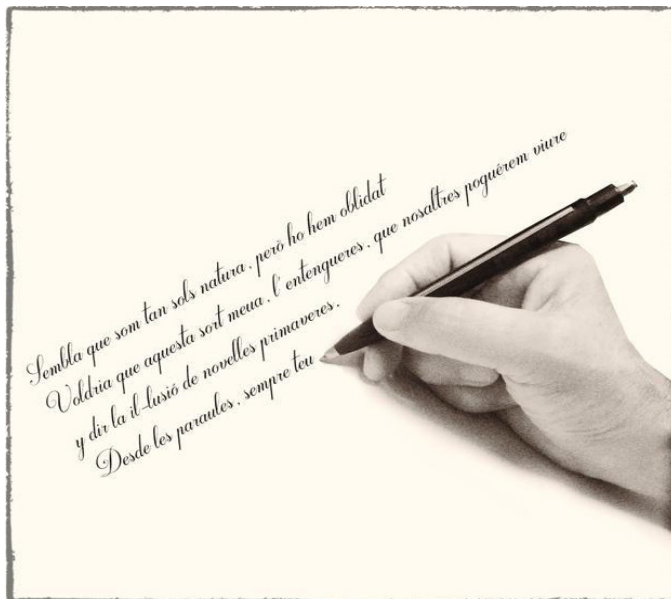 Sembla que som tan sols natura, però ho hem oblidat
Voldria que aquesta sort meua, l' entengueres, que nosaltres poguérem viure
y dir la il-lusió de novelles primaveres,
Desde les paraules, sempre teu